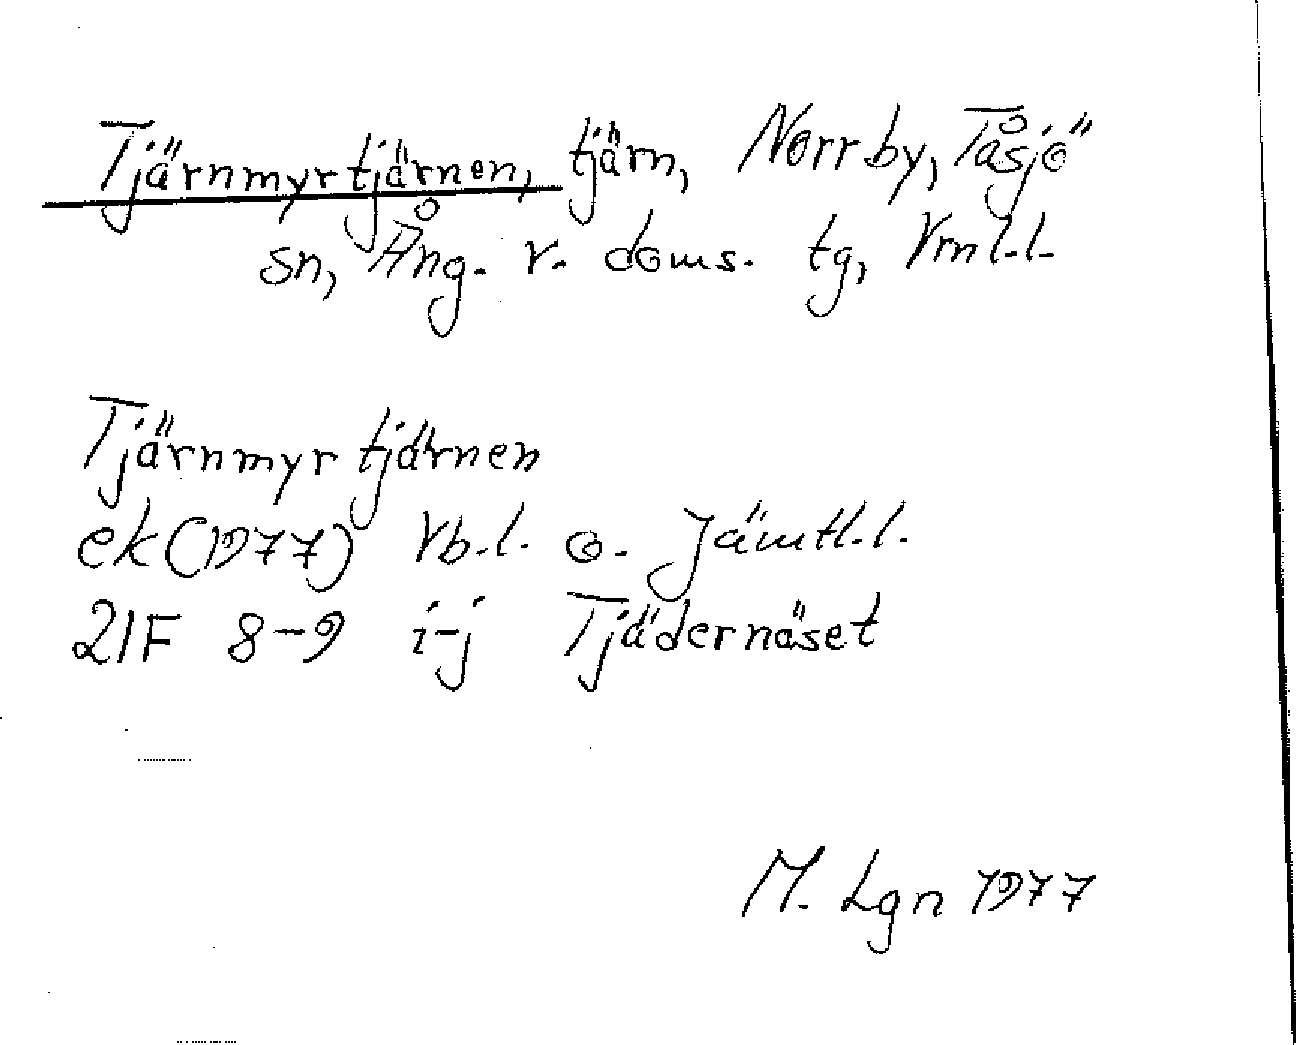 Tjärnmyrtjärnen, tjärn, Norrby, Tåsjö
sn, Ång. v. doms. tg, Vrnl.l.
Tjärnmyrtjärnen
ek (1977) Vb.l. o. Jämtl.l.
21F 8-9 i-j Tjädernäset
M. Lgn 1977